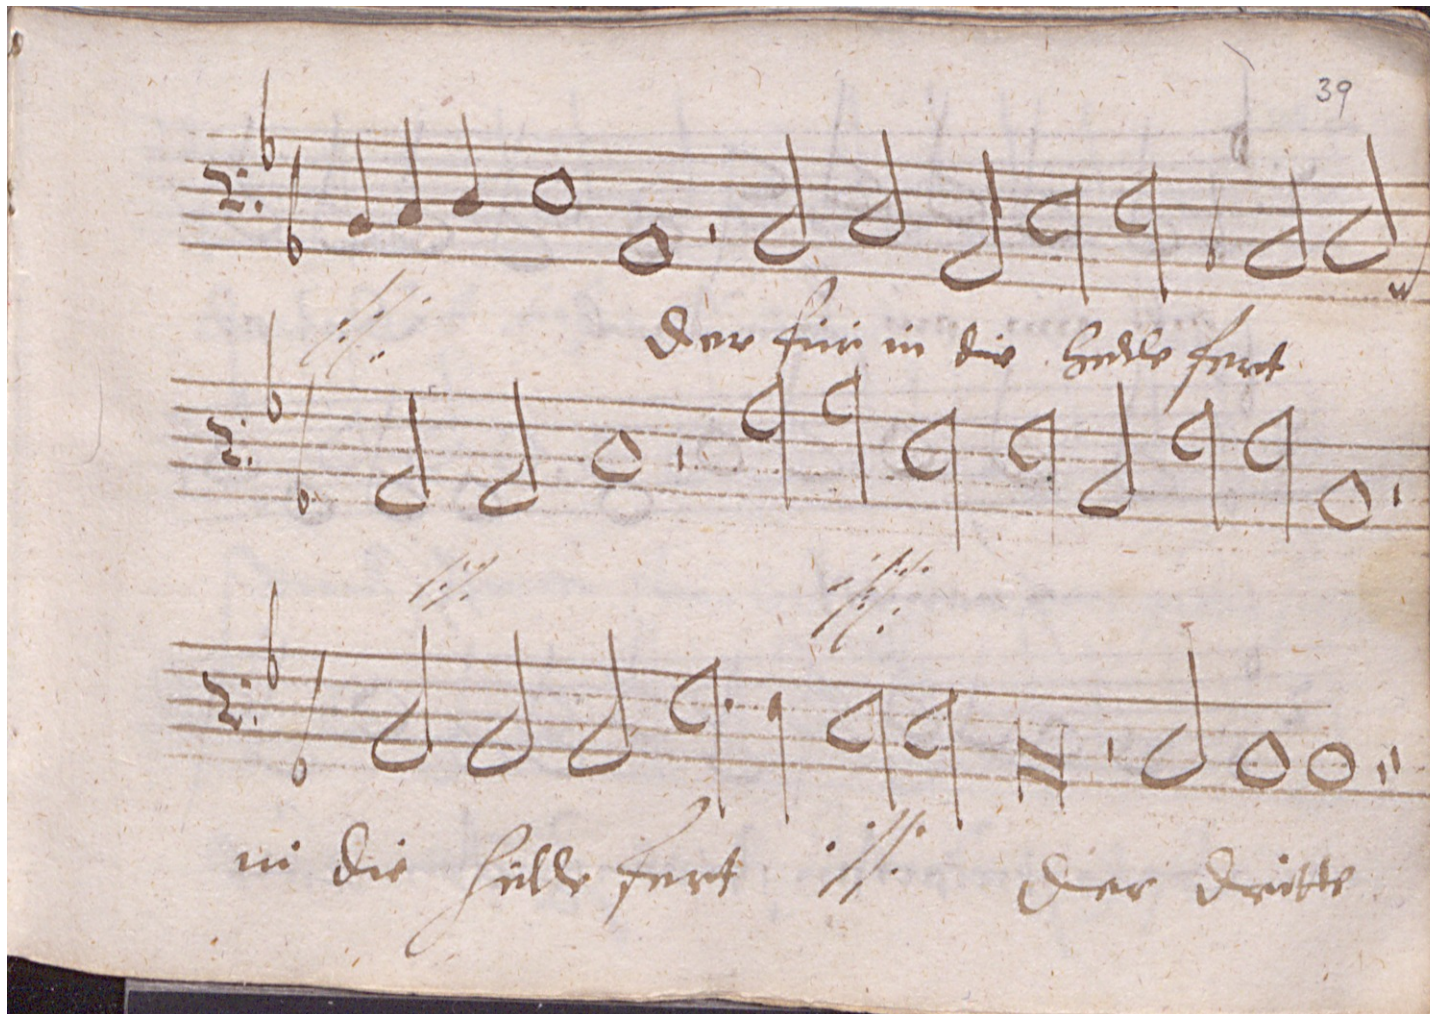 39
der für in die helle fert
in die helle fert der dritte